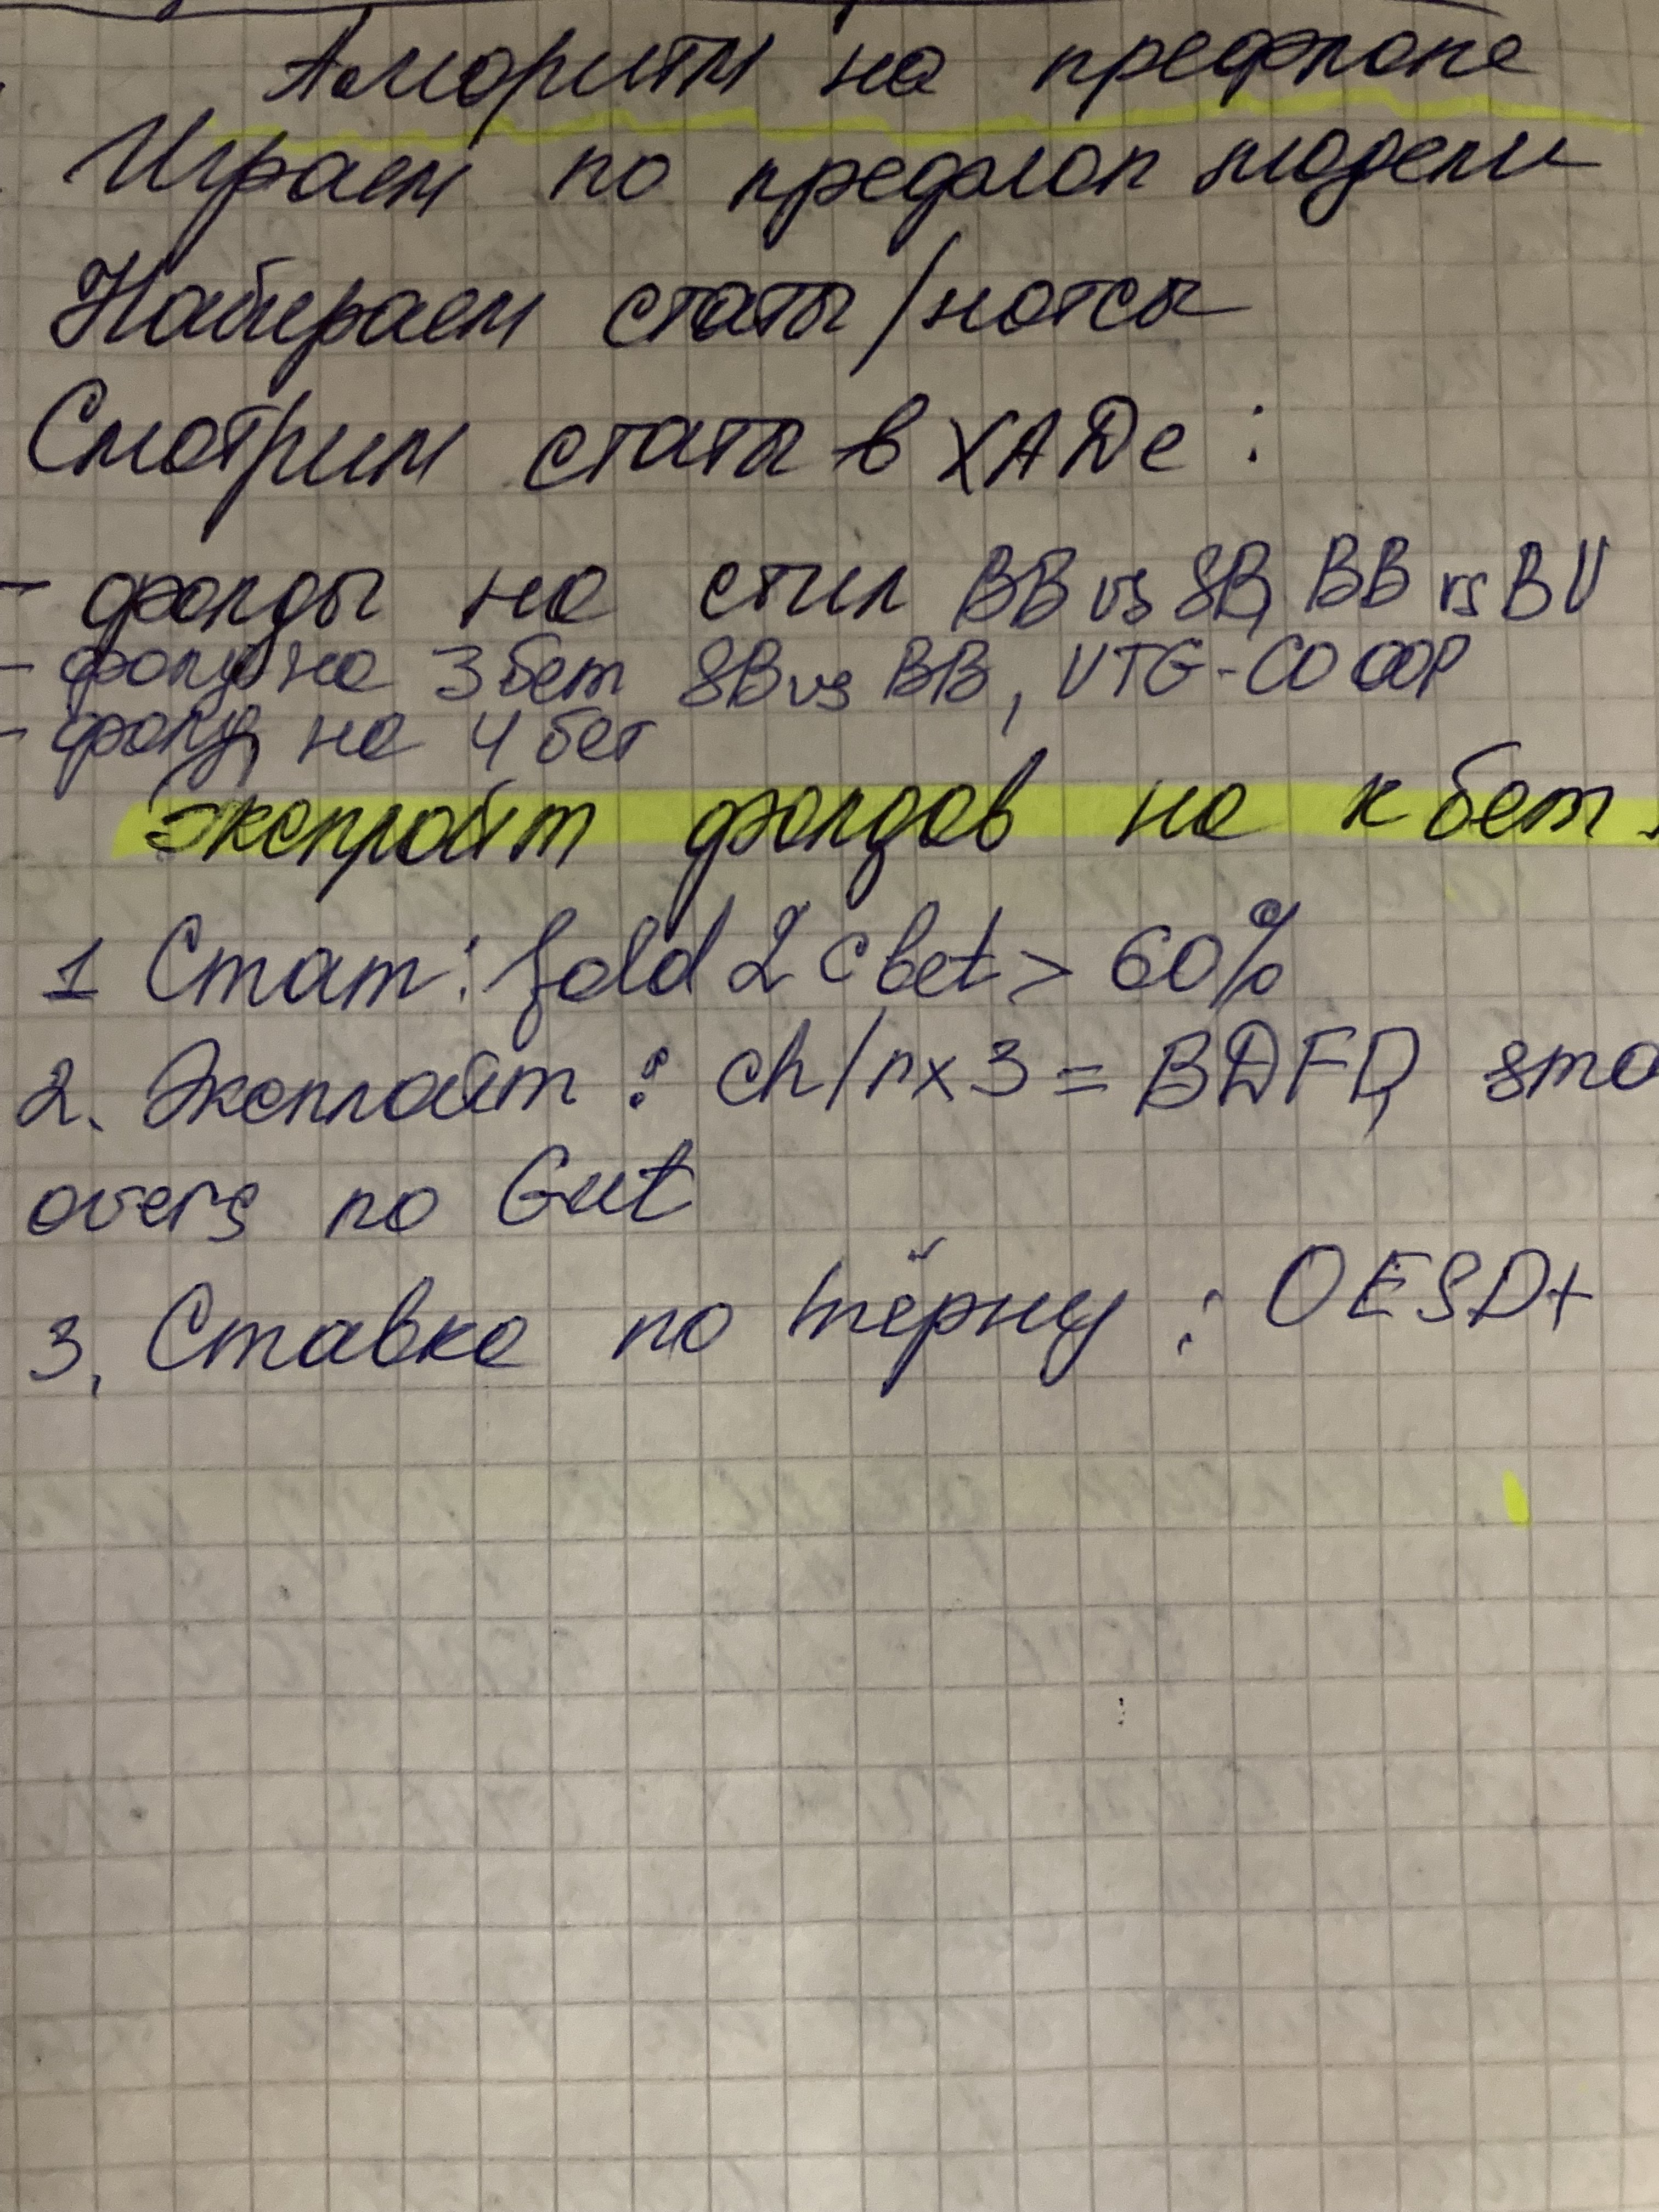 Алгоритм на префлопе
Играем по префлоп модели
Набираем статы/нотсы
Смотрим статы в ХАДе :
- фолды на стил BB vs SB, BB vs BU
- фолды на 3бет SB vs BB, UTG-CO OOP
- фолд на 4бет
Эксплойт фолдов на кбет
1 Стат: fold 2 cbet > 60%
2. Эксплойт : ch/r x3 = BDFD,
overs no Gut
3. Ставка по тёрну : OESD+